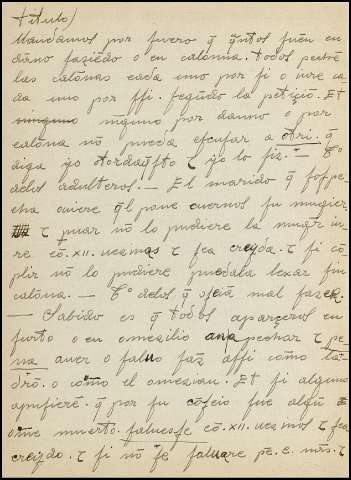 titulo)
Mandamos por fuero q̃ q̃ntos fuẽ en
daño faziẽdo o en calonna. todos pectẽ
las calõnas cada uno por fi o iure ca
da uno por ffi. fegũdo la peticiõ. Et
ninguno por danno o por
calõna nõ pueda efcufar a otri. q̃
diga yo  τ yo lo fiz. — Tº
delos adulteros. — El marido q̃ foffpe
cha ouiere q̃l pone cuernos fu mugier
τ puar nõ lo pudiere la mugr̃ iu
re cõ. XII. uezinas τ fea creyda. τ fi cõ
plir nõ lo pudiere puedala lexar fin
calõna. — Tº delos q̃  mal fazer.
— Sabido es q̃ todos aparçeros en
furto o en omezilio an a pechar τ pe
na auer o faluo faz̃ affi cõmo la
drõ. o cõmo el omezian. Et fi alguno
apufierẽ. q̃ por fu cõfeio fue algũ
ome muerto. faluesfe cõ. XII. uezinos τ fea
creizdo. τ fi nõ fe faluare pe.e. mrs. τ